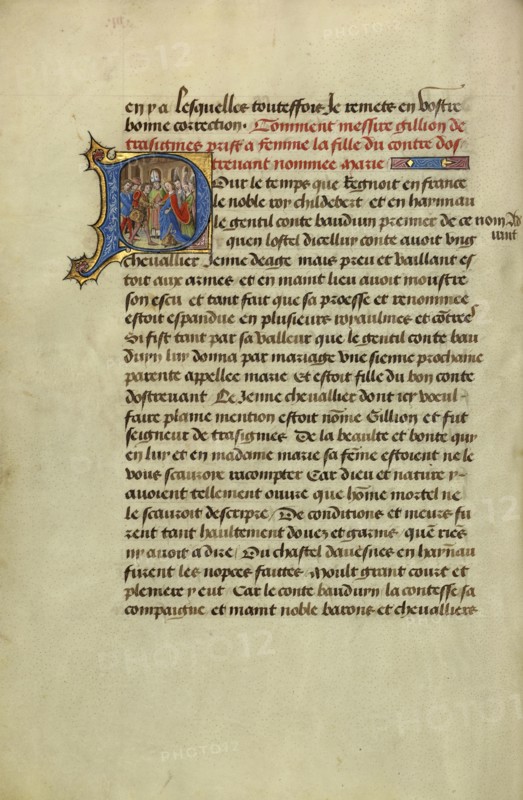 en y a lesquelles touteffois Je remets en vostre
bonne correction. Comment messire gillion de
trasignies prist a femme la fille du conte dos-
trevant nommee marie
Pour le temps que Regnoit en france
le noble roy childebert et en haynnau
le gentil conte bauduin premier de ce nom
quen lostel dicelluy conte avoit ung
vaillant
chevallier Jenne deage mais preu et vaillant es-
toit aux armes et en maint lieu avoit moustre
son escu et tant fait que sa proesse et renommee
estoit espandue en plusieurs royaulmes et cõtrees
Si fist tant par sa valleur que le gentil conte bau
duyn luy donna par mariage une sienne prochaine
parente appellee marie Et estoit fille du bon conte
dostrevant Le Jenne chevallier dont icy voeul-
faire plaine mention estoit nõme Gillion et fut
seigneur de trasignies De la beaulte et bonte quy
en luy et en madame marie sa fẽme estoient ne le
vous scauroie racompter Car dieu et nature y-
avoient tellement ouvre que hõme mortel ne
le scauroit descripre / De conditions et meurs fu
rent tant haultement douez et garnis quẽ riẽs
ny avoit a dire / Du chastel davesnes en haynãu
furent les nopces faittes Moult grant court et
pleniere y eut Car le conte bauduyn la contesse sa
compaigne et maint noble barons et chevalliers
PHOTO12
PHOTO12
PHOTO12